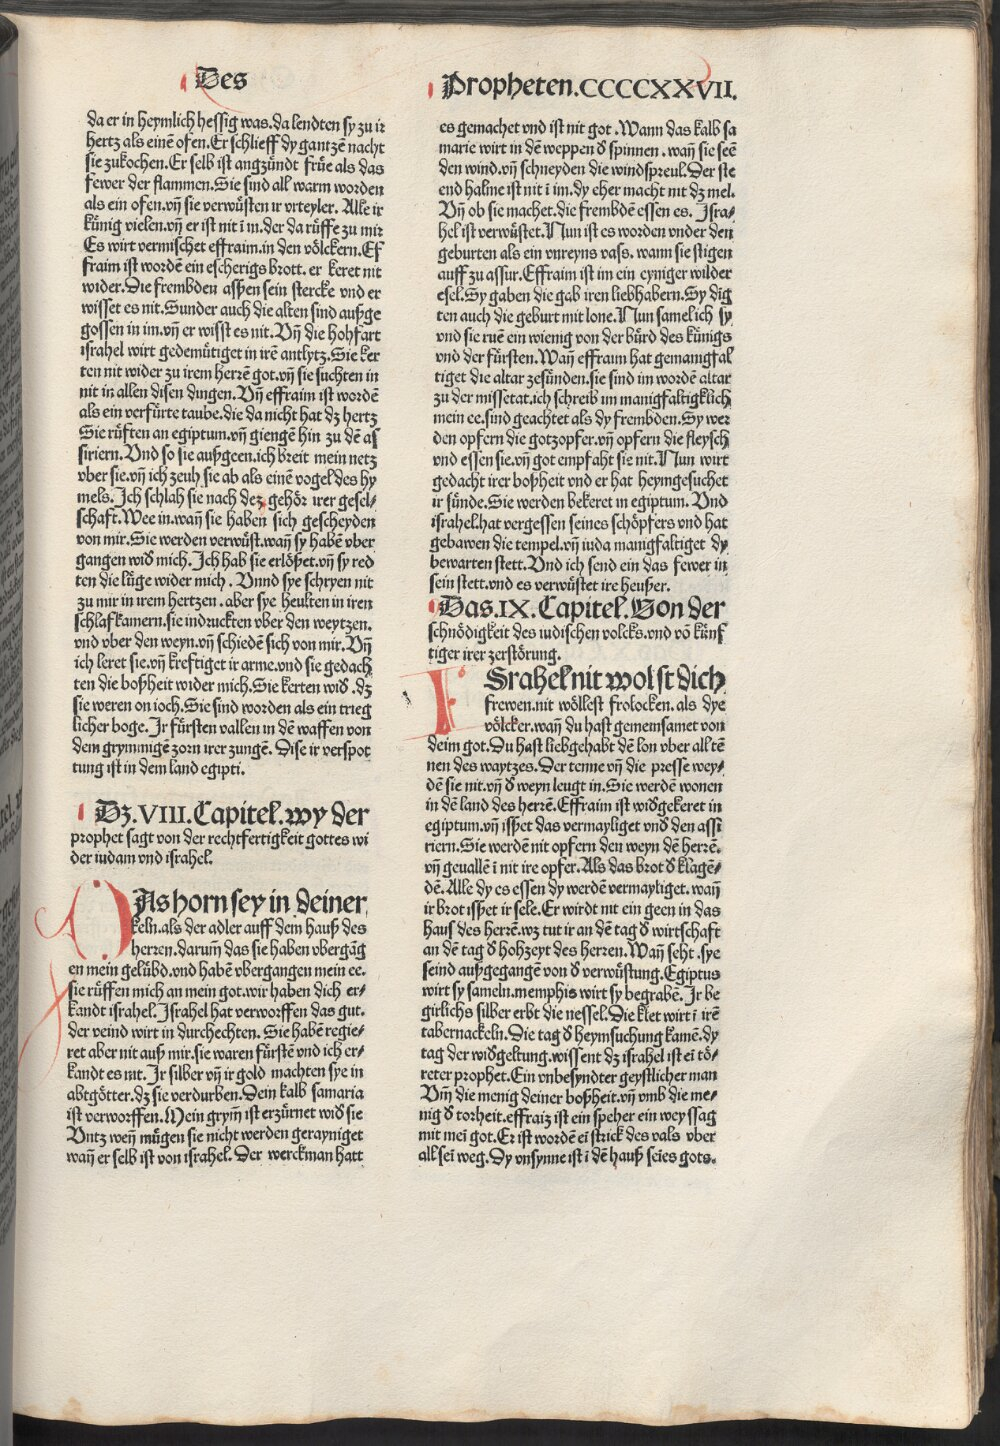 Des
Propheten.CCCCXXVII.
da er in heymlich hessig was.da lendten sy zu ir
hertz als einē ofen.Er schlieff dy gantzē nacht
sie zukochen.Er selb ist angzündt früe als das
fewer der flammen.Sie sind all warm worden
als ein ofen.vn̄ sie verwüsten ir vrteyler. Alle ir
künig vielen.vn̄ er ist nit ī in.der da rüffe zu mir
Es wirt vermischet effraim.in den völckern.Ef
fraim ist wordē ein escherigs brott. er keret nit
wider.Die frembden assen sein stercke vnd er
wisset es nit.Sunder auch die alten sind außge
gossen in im.vn̄ er wisst es nit. Vn̄ die hohfart
israhel wirt gedemütiget in irē antlytz.Sie ker
ten nit wider zu irem herrē got.vn̄ sie suchten in
nit in allen disen dingen. Vn̄ effraim ist wordē
als ein verfürte taube.die da nicht hat dz hertz
Sie rüften an egiptum.vn̄ giengē hin zu dē as
siriern.Vnd so sie außgeen.ich breit mein netz
vber sie.vn̄ ich zeuh sie ab als einē vogel des hy
mels.Ich schlah sie nach dez gehör irer gesel⸗
schaft.Wee in.wan̄ sie haben sich gescheyden
von mir.Sie werden verwüst.wan̄ sy habē vber
gangen wid̄ mich. Ich hab sie erlößet.vn̄ sy red
ten die lüge wider mich. Vnnd sye schryen nit
zu mir in irem hertzen.aber sye heulten in iren
schlafkamern.sie indruckten vber den weytzen.
vnd vber den weyn.vn̄ schiedē sich von mir.Vn̄
ich leret sie.vn̄ kreftiget ir arme.vnd sie gedach
ten die boßheit wider mich.Sie kerten wid̄.dz
sie weren on ioch.Sie sind worden als ein trieg
licher boge.Ir fürsten vallen in dē waffen von
dem grymmigē zorn irer zungē. Dise ir verspot
tung ist in dem land egipti.
Dz.VIII.Capitel.wy der
prophet sagt von der rechtfertigkeit gottes wi
der iudam vnd israhel.
DAs horn sey in deiner
keln.als der adler auff dem hauß des
herren.darum̄ das sie haben vbergāg
en mein gelübd.vnd habē vbergangen mein ee.
sie rüffen mich an mein got.wir haben dich er⸗
kandt israhel. Israhel hat verworffen das gut.
der veind wirt in durchechten. Sie habē regie⸗
ret aber nit auß mir.sie waren fürstē vnd ich er⸗
kandt es nit. Ir silber vn̄ ir gold machten sye in
abtgötter.dz sie verdurben. Dein kalb samaria
ist verworffen.Mein grym̄ ist erzürnet wid̄ sie
Vntz wen̄ mügen sie nicht werden gerayniget
wan̄ er selb ist von israhel. Der werckman hatt
es gemachet vnd ist nit got.Wann das kalb sa
marie wirt in dē weppen d̄ spinnen.wan̄ sie seē
den wind.vn̄ schneyden die windspreul.Der ste
end halme ist nit ī im.dy eher macht nit dz mel.
Vn̄ ob sie machet.die frembdē essen es. Isra⸗
hel ist verwüstet.Nun ist es worden vnder den
geburten als ein vnreyns vass. wann sie stigen
auff zu assur.Effraim ist im ein eyniger wilder
esel.Sy gaben die gab iren liebhabern.Sy dig
ten auch die geburt mit lone.Nun samel ich sy
vnd sie ruē ein wienig von der bürd des künigs
vnd der fürsten.Wan̄ effraim hat gemanigfal
tiget die altar zesünden.sie sind im wordē altar
zu der missetat.ich schreib im manigfaltigklich
mein ee.sind geachtet als dy frembden.Sy wer
den opfern die gotzopfer.vn̄ opfern die fleysch
vnd essen sie.vn̄ got empfaht sie nit.Nun wirt
gedacht irer boßheit vnd er hat heymgesuchet
ir sünde.Sie werden bekeret in egiptum. Vnd
israhel.hat vergessen seines schöpfers vnd hat
gebawen die tempel.vn̄ iuda manigfaltiget dy
bewarten stett.Vnd ich send ein das fewer in
sein stett.vnd es verwüstet ire heußer.
Das.IX.Capitel.Von der
schnödigkeit des iudischen volcks.vnd vō künf
tiger irer zerstörung.
ISrahel nit wolst dich
frewen.nit wöllest frolocken.als dye
völcker.wan̄ du hast gemeinsamet von
deim got.Du hast liebgehabt dē lon vber all tē
nen des waytzes.Der tenne vn̄ die presse wey⸗
dē sie nit.vn̄ d̄ weyn leugt in.Sie werdē wonen
in dē land des herrē.Effraim ist wid̄gekeret in
egiptum.vn̄ isset das vermayliget vnd̄ den assi
riern.Sie werdē nit opfern den weyn dē herrē.
vn̄ geuallē ī nit ire opfer.Als das brot d̄ klagē⸗
dē.Alle dy es essen dy werdē vermayliget.wan̄
ir brot isset ir sele.Er wirdt nit ein geen in das
haus des herrē.wz tut ir an dē tag d̄ wirtschaft
an dē tag d̄ hohzeyt des herren.Wan̄ seht.sye
seind außgegangē von d̄ verwüstung.Egiptus
wirt sy sameln.memphis wirt sy begrabē. Ir be
girlichs silber erbt die nessel.Die klet wirt ī irē
tabernackeln.Die tag d̄ heymsuchung kamē.dy
tag der wid̄geltung.wissent dz israhel ist eī tö⸗
reter prophet.Ein vnbesyndter geystlicher man
Vm̄ die menig deiner boßheit.vn̄ vmb die me⸗
nig d̄ torheit.effraiz ist ein speher ein weyssag
mit meī got.Er ist wordē eī strick des vals vber
all seī weg.Dy vnsynne ist ī dē hauß seīes gots.